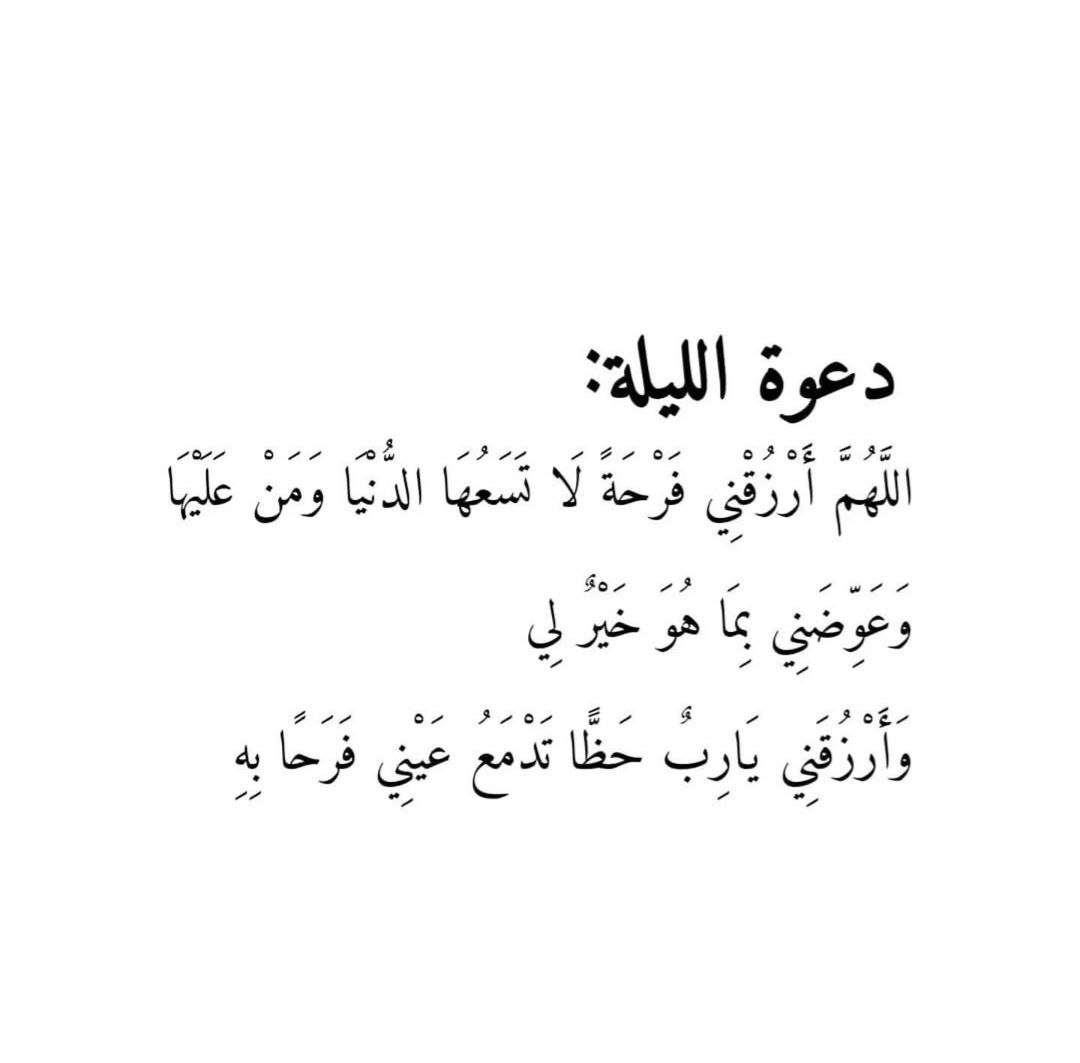 دعوة الليلة:
اللَّهُمَّ أَرْزُقْنِي فَرْحَةً لَا تَسَعُهَا الدُّنْيَا وَمَنْ عَلَيْهَا
وَعَوِّضَنِي بِمَا هُوَ خَيْرٌ لِي
وَأَرْزُقَنِي يَارِبٌ حَظًّا تَدْمَعُ عَيْنِي فَرَحًا بِهِ